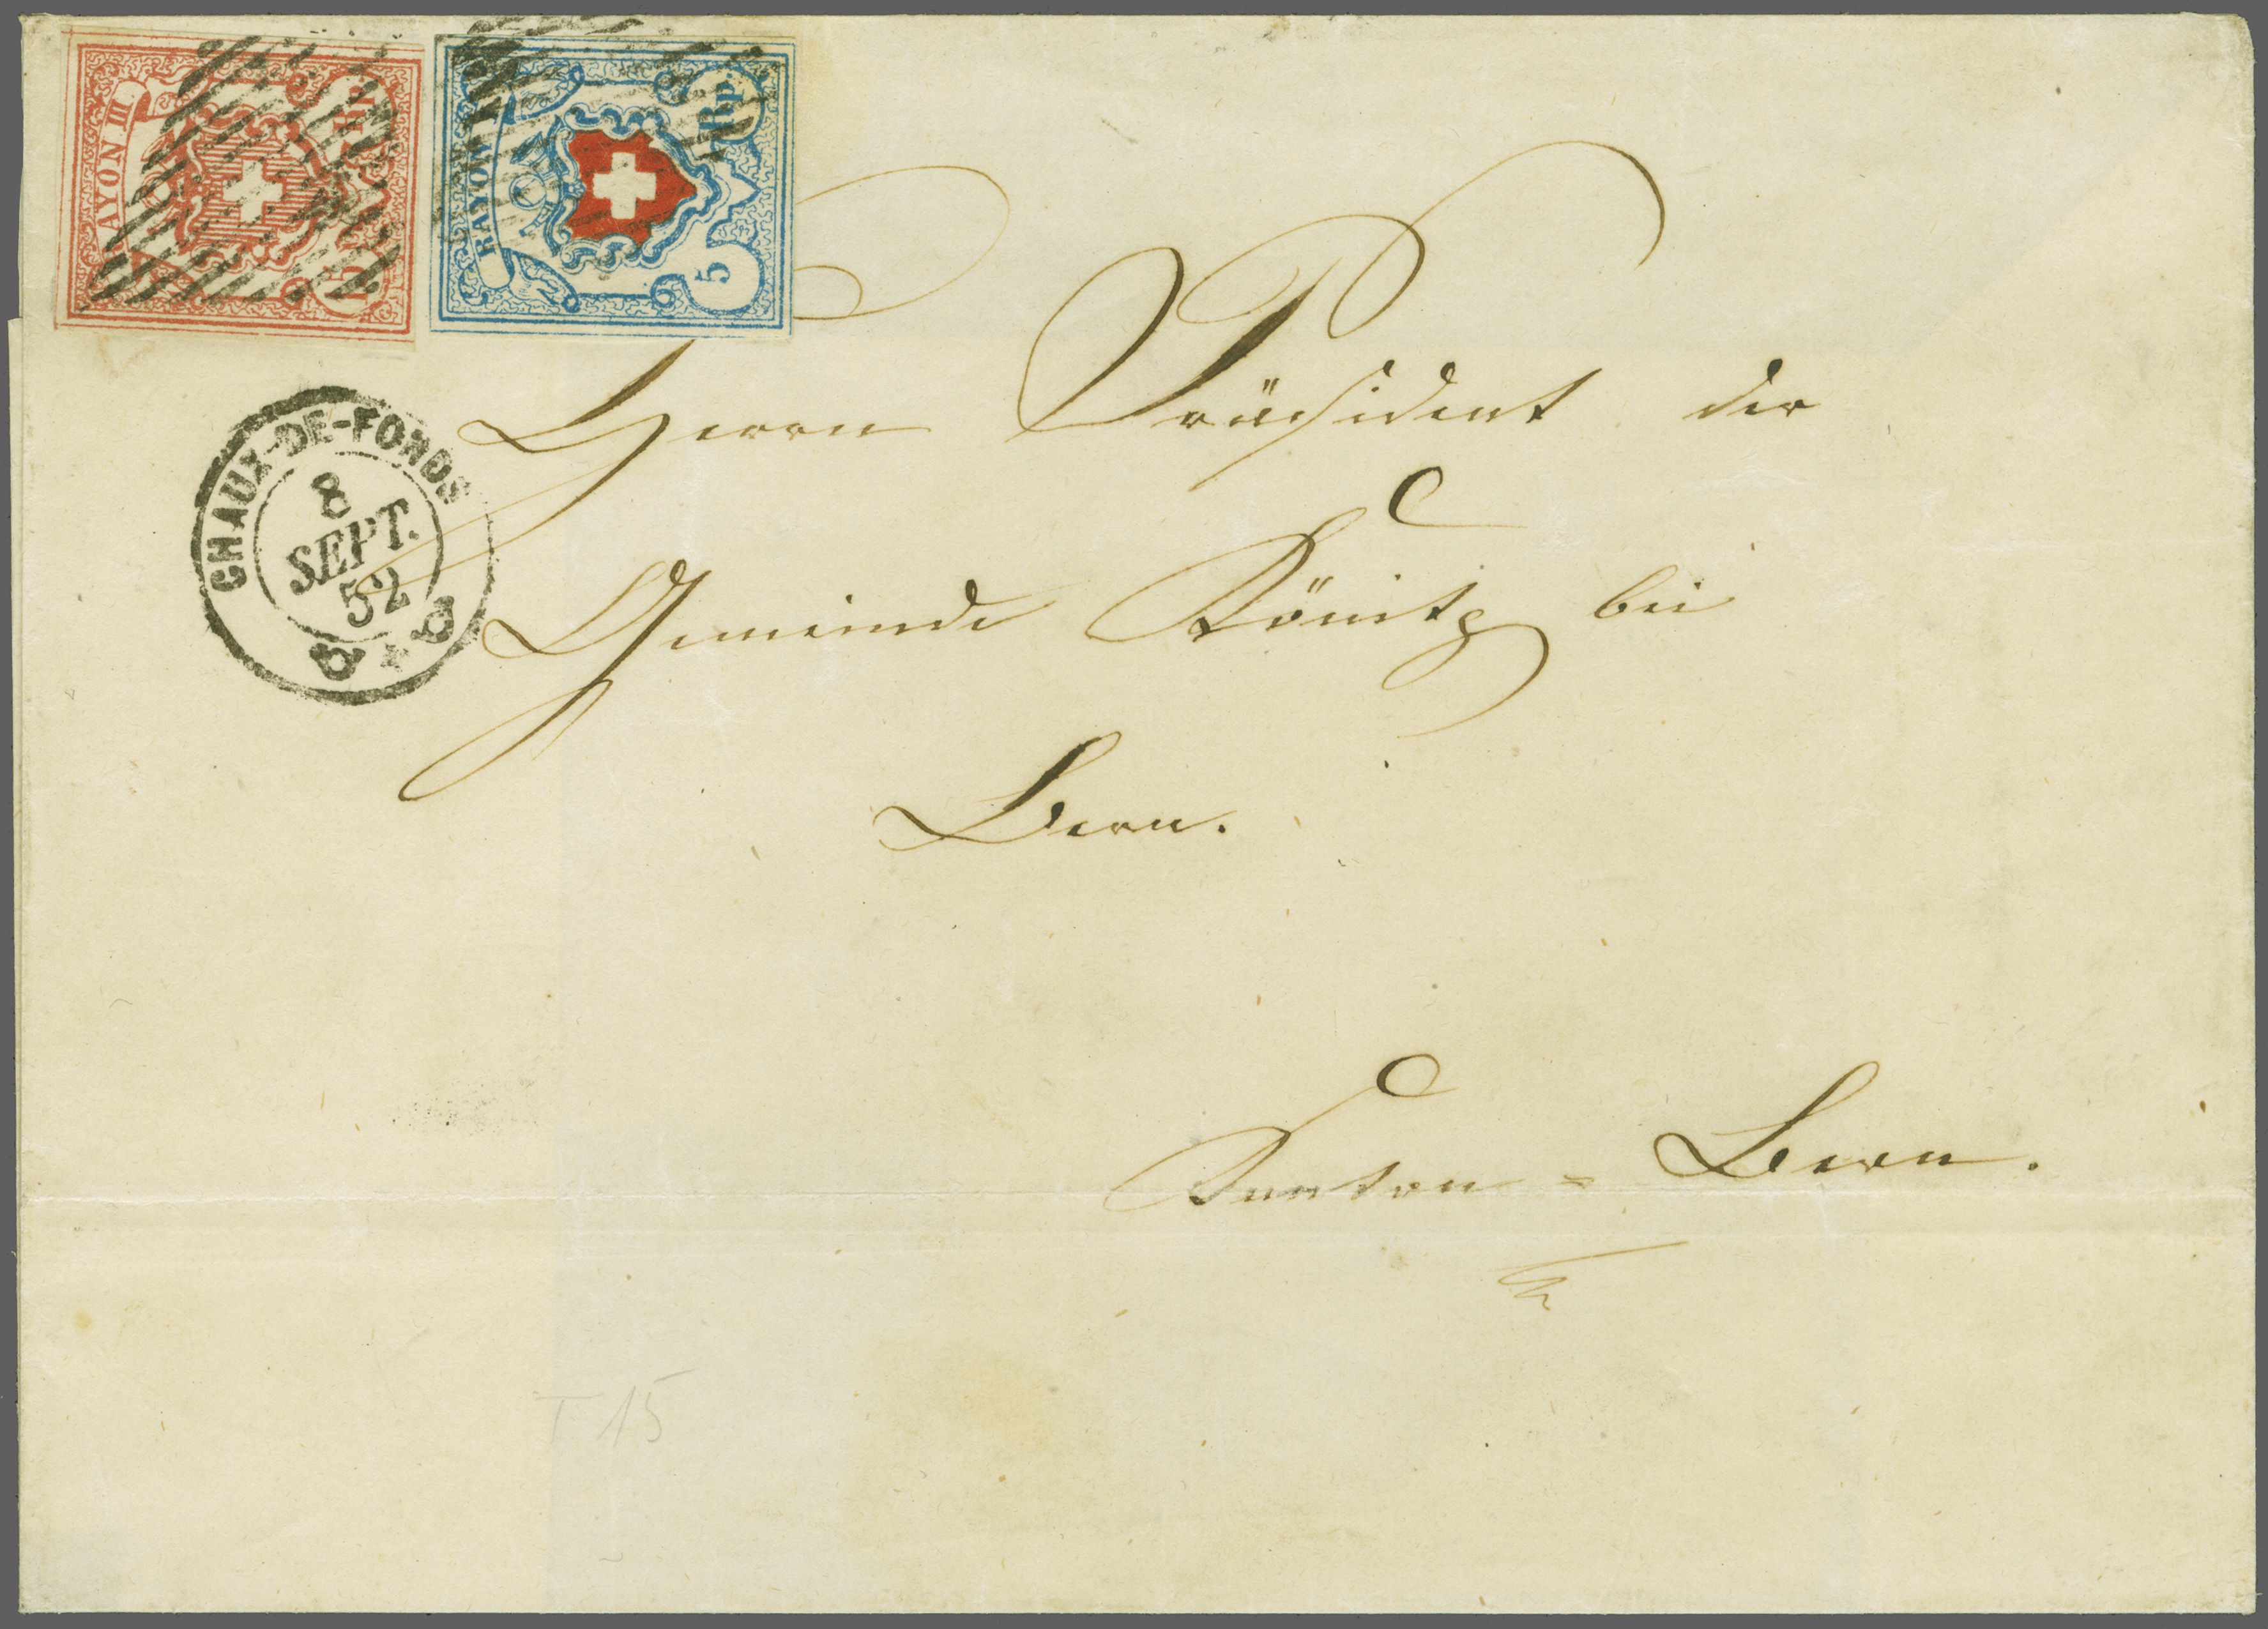 RAYON III
Rp.
RAYON I
5 Rp.
CHAUX-DE-FONDS
8
SEPT.
52
Herrn Präsident der
Gemeinde Könitz bei
Bern.
Kanton = Bern.
T 15